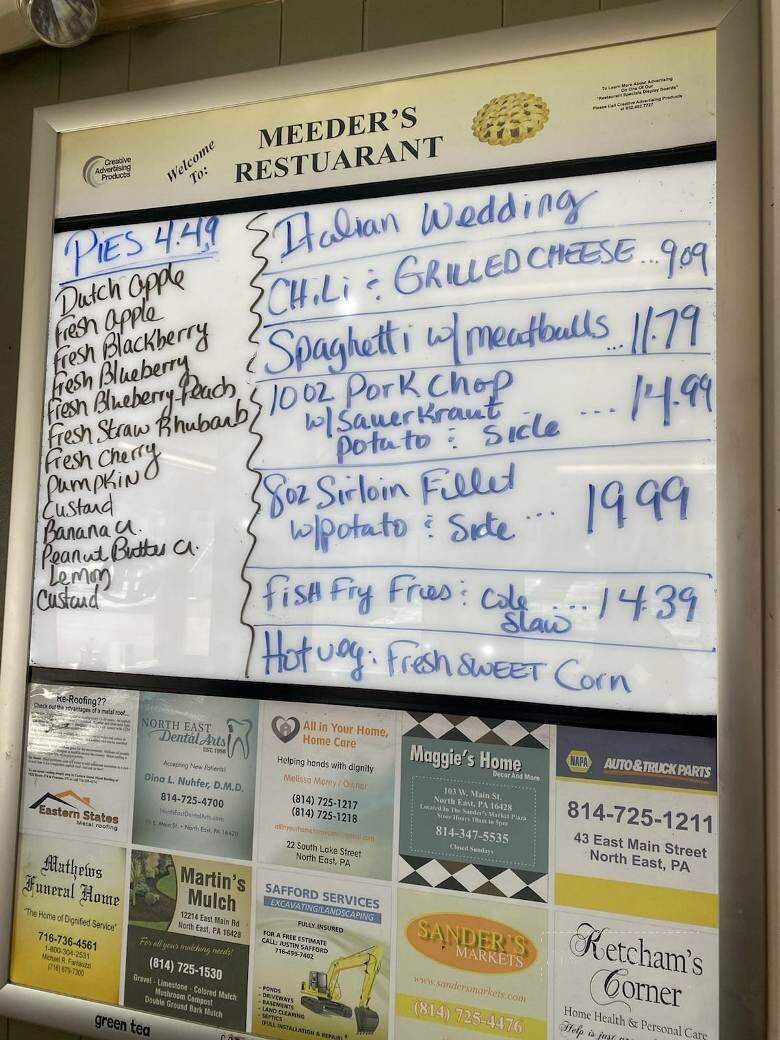 Creative
Advertising
Products
Welcome
To:
MEEDER'S
RESTUARANT
To Learn More About Advertising
On One Of Our
"Restaurant Specials Display Boards"
Please Call Creative Advertising Products
PIES 4.49
Dutch apple
Fresh apple
Fresh Blackberry
Fresh Blueberry
Fresh Blueberry-Peach
Fresh Straw Rhubarb
Fresh Cherry
Pumpkin
Custard
Banana Cr.
Peanut Butter Cr.
Lemon
Custard
Italian Wedding
CHiLi & GRILLED CHEESE ...9.09
Spaghetti w/meatballs ...11.79
10 oz Pork Chop
w/Sauerkraut ... 14.99
potato & Side
8oz Sirloin Fillet
w/potato & Side ... 19.99
Fish Fry Fries & Cole ...14.39
Slaw
Hot veg: Fresh SWEET Corn
Re-Roofing??
Check out the advantages of a metal roof...
Eastern States
Metal roofing
NORTH EAST
Dental Arts
EST. 1898
Accepting New Patients!
Dina L. Nuhfer, D.M.D.
814-725-4700
NorthEastDentalArts.com
E. Main St. • North East, PA 16428
All in Your Home,
Home Care
Helping hands with dignity
Melissa Morey / Owner
(814) 725-1217
(814) 725-1218
22 South Lake Street
North East, PA
Maggie's Home
Decor And More
103 W. Main St.
North East, PA 16428
Located In The Sander's Market Plaza
Store Hours 10am to 5pm
814-347-5535
Closed Sundays
NAPA
AUTO & TRUCK PARTS
814-725-1211
43 East Main Street
North East, PA
Mathews
Funeral Home
"The Home of Dignified Service"
716-736-4561
1-800-304-2531
Michael R. Fantauzzi
(716) 679-7300
Martin's
Mulch
12214 East Main Rd
North East, PA 16428
For all your mulching needs!
(814) 725-1530
Gravel - Limestone - Colored Mulch
Mushroom Compost
Double Ground Bark Mulch
SAFFORD SERVICES
EXCAVATING/LANDSCAPING
FULLY INSURED
FOR A FREE ESTIMATE
CALL: JUSTIN SAFFORD
716-499-7402
- PONDS
- DRIVEWAYS
- BASEMENTS
- LAND CLEARING
- SEPTICS
(FULL INSTALLATION & REPAIR)
SANDER'S
MARKETS
www.sandersmarkets.com
(814) 725-4476
Ketcham's
Corner
Home Health & Personal Care
Help is just
green tea